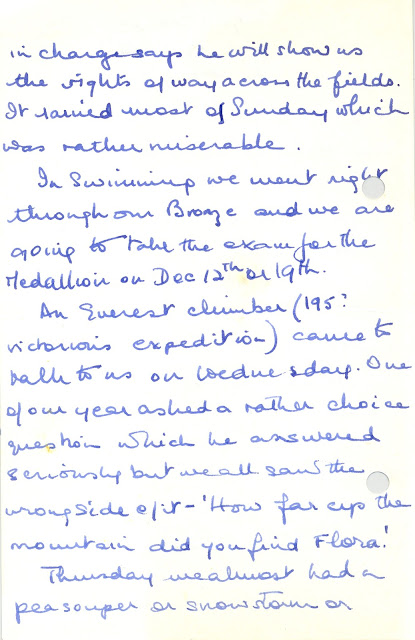 in charge says he will show us
the rights of way across the fields.
It rained most of Sunday which
was rather miserable.
In Swimming we went right
through our Bronze and we are
going to take the exam for the
Medallion on Dec 12th or 19th.
An Everest climber (195?
victorious expedition) came to
talk to us on Wednesday. One
of our year asked a rather choice
question which he answered
seriously but we all saw the
wrong side of it - 'How far up the
mountain did you find Flora.'
Thursday we almost had a
peasouper or snowstorm or